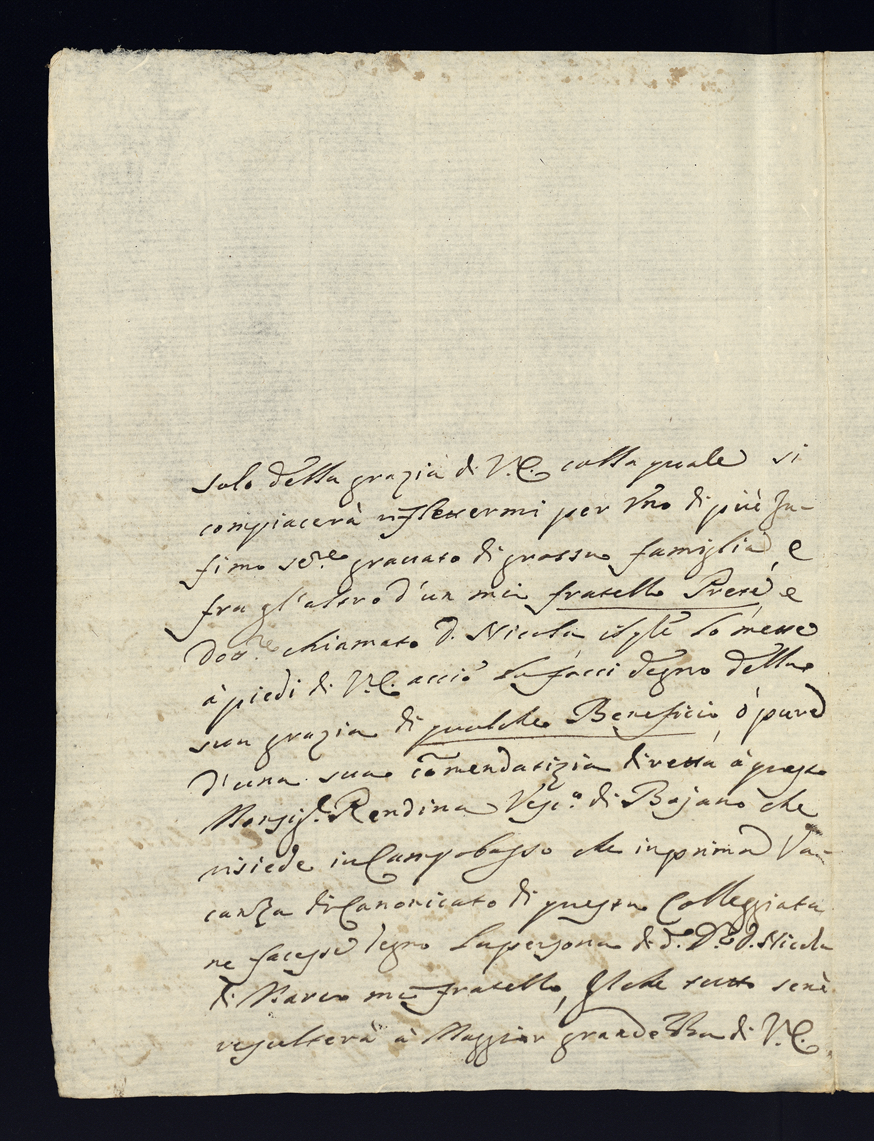 solo della grazia di V.E. colla quale si
compiacerà riflettermi per Uno di più In-
fimo Serve gravato di grossa famiglia, e
fra gl'altro d'un mio fratello Prete, e
Dottre chiamato D. Nicola il qle lo metto
à piedi di V.E. acciò lo facci degno della
sua grazia di qualche Beneficio, ò pure
d'una sua comendatizia diretta à questo
Monsigr. Rendina Vesco. di Bojano che
risiede in Campobasso che in prima Va-
canza di Canonicato di questa Colleggiata
ne facesse degno la persona di d. Dr. D. Nicola
di Marco mio fratello, che tutto senè
resulterà à Maggior grandezza di V.E.